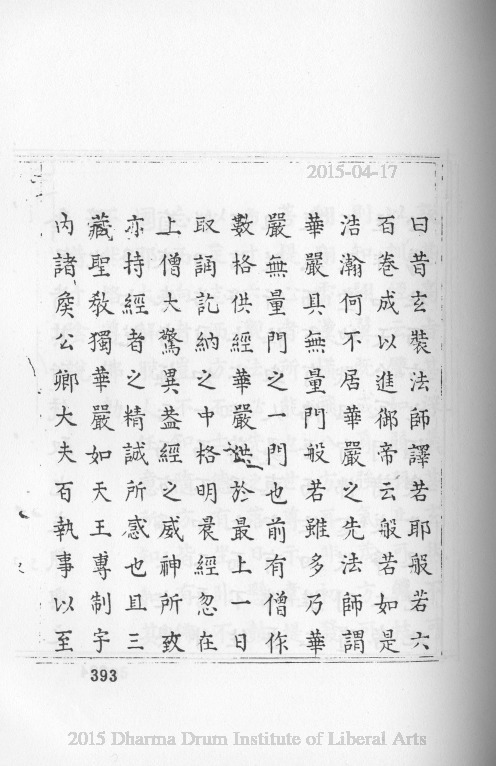 2015-04-17
曰昔玄裝法師譯若耶般若六
百卷成以進御帝云般若如是
浩瀚何不居華嚴之先法師謂
華嚴具無量門般若雖多乃華
嚴無量門之一門也前有僧作
數格供經華嚴供於最上一日
取誦訖納之中格明晨經忽在
上僧大驚異葢經之威神所致
亦持經者之精誠所感也且三
藏聖教獨華嚴如天王專制宇
內諸矦公卿大夫百執事以至
393
2015 Dharma Drum Institute of Liberal Arts